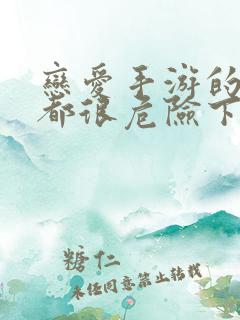 戀愛手游的
都很危險下
糖仁
未经同意禁止转载